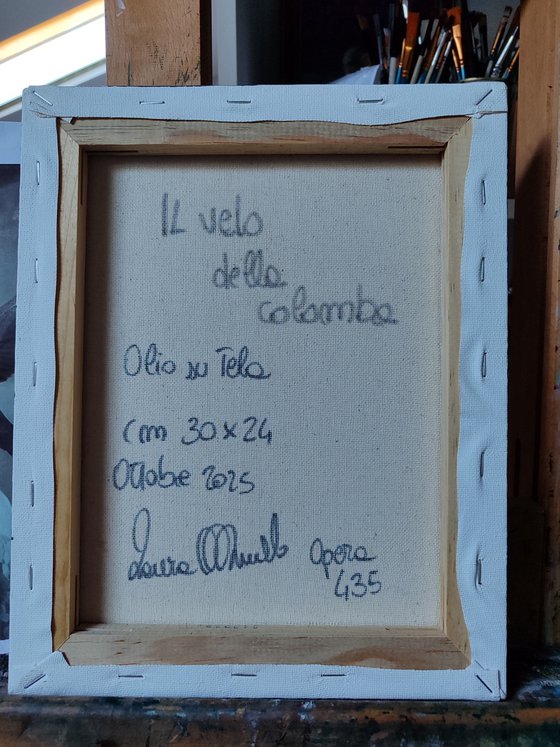 IL velo
della
colomba
Olio su Tela
cm 30x24
Ottobre 2025
Laura
Opera
435